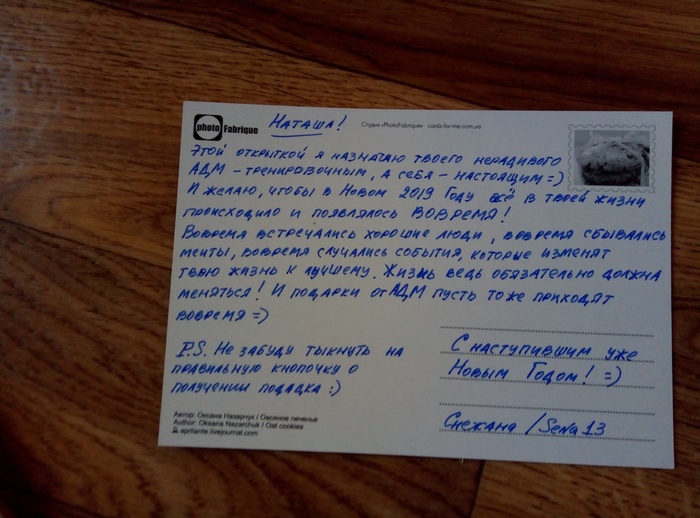 photo Fabrique
Студия «PhotoFabrique» cards-for-me.com.ua
Наташа!
Этой открыткой я назначаю твоего нерадивого
АДМ - тренировочным, а себя - настоящим =)
И желаю, чтобы в Новом 2019 Году всё в твоей жизни
происходило и появлялось ВОВРЕМЯ!
Вовремя встречались хорошие люди, вовремя сбывались
мечты, вовремя случались события, которые изменят
твою жизнь к лучшему. Жизнь ведь обязательно должна
меняться! И подарки от АДМ пусть тоже приходят
вовремя =)
P.S. Не забуду тыкнуть на
правильную кнопочку о
получении подадка :)
С наступившим уже
Новым Годом! =)
Снежана / Sena 13
Автор: Оксана Назарчук / Овсяное печенье
Author: Oksana Nazarchuk / Oat cookies
eprilante.livejournal.com